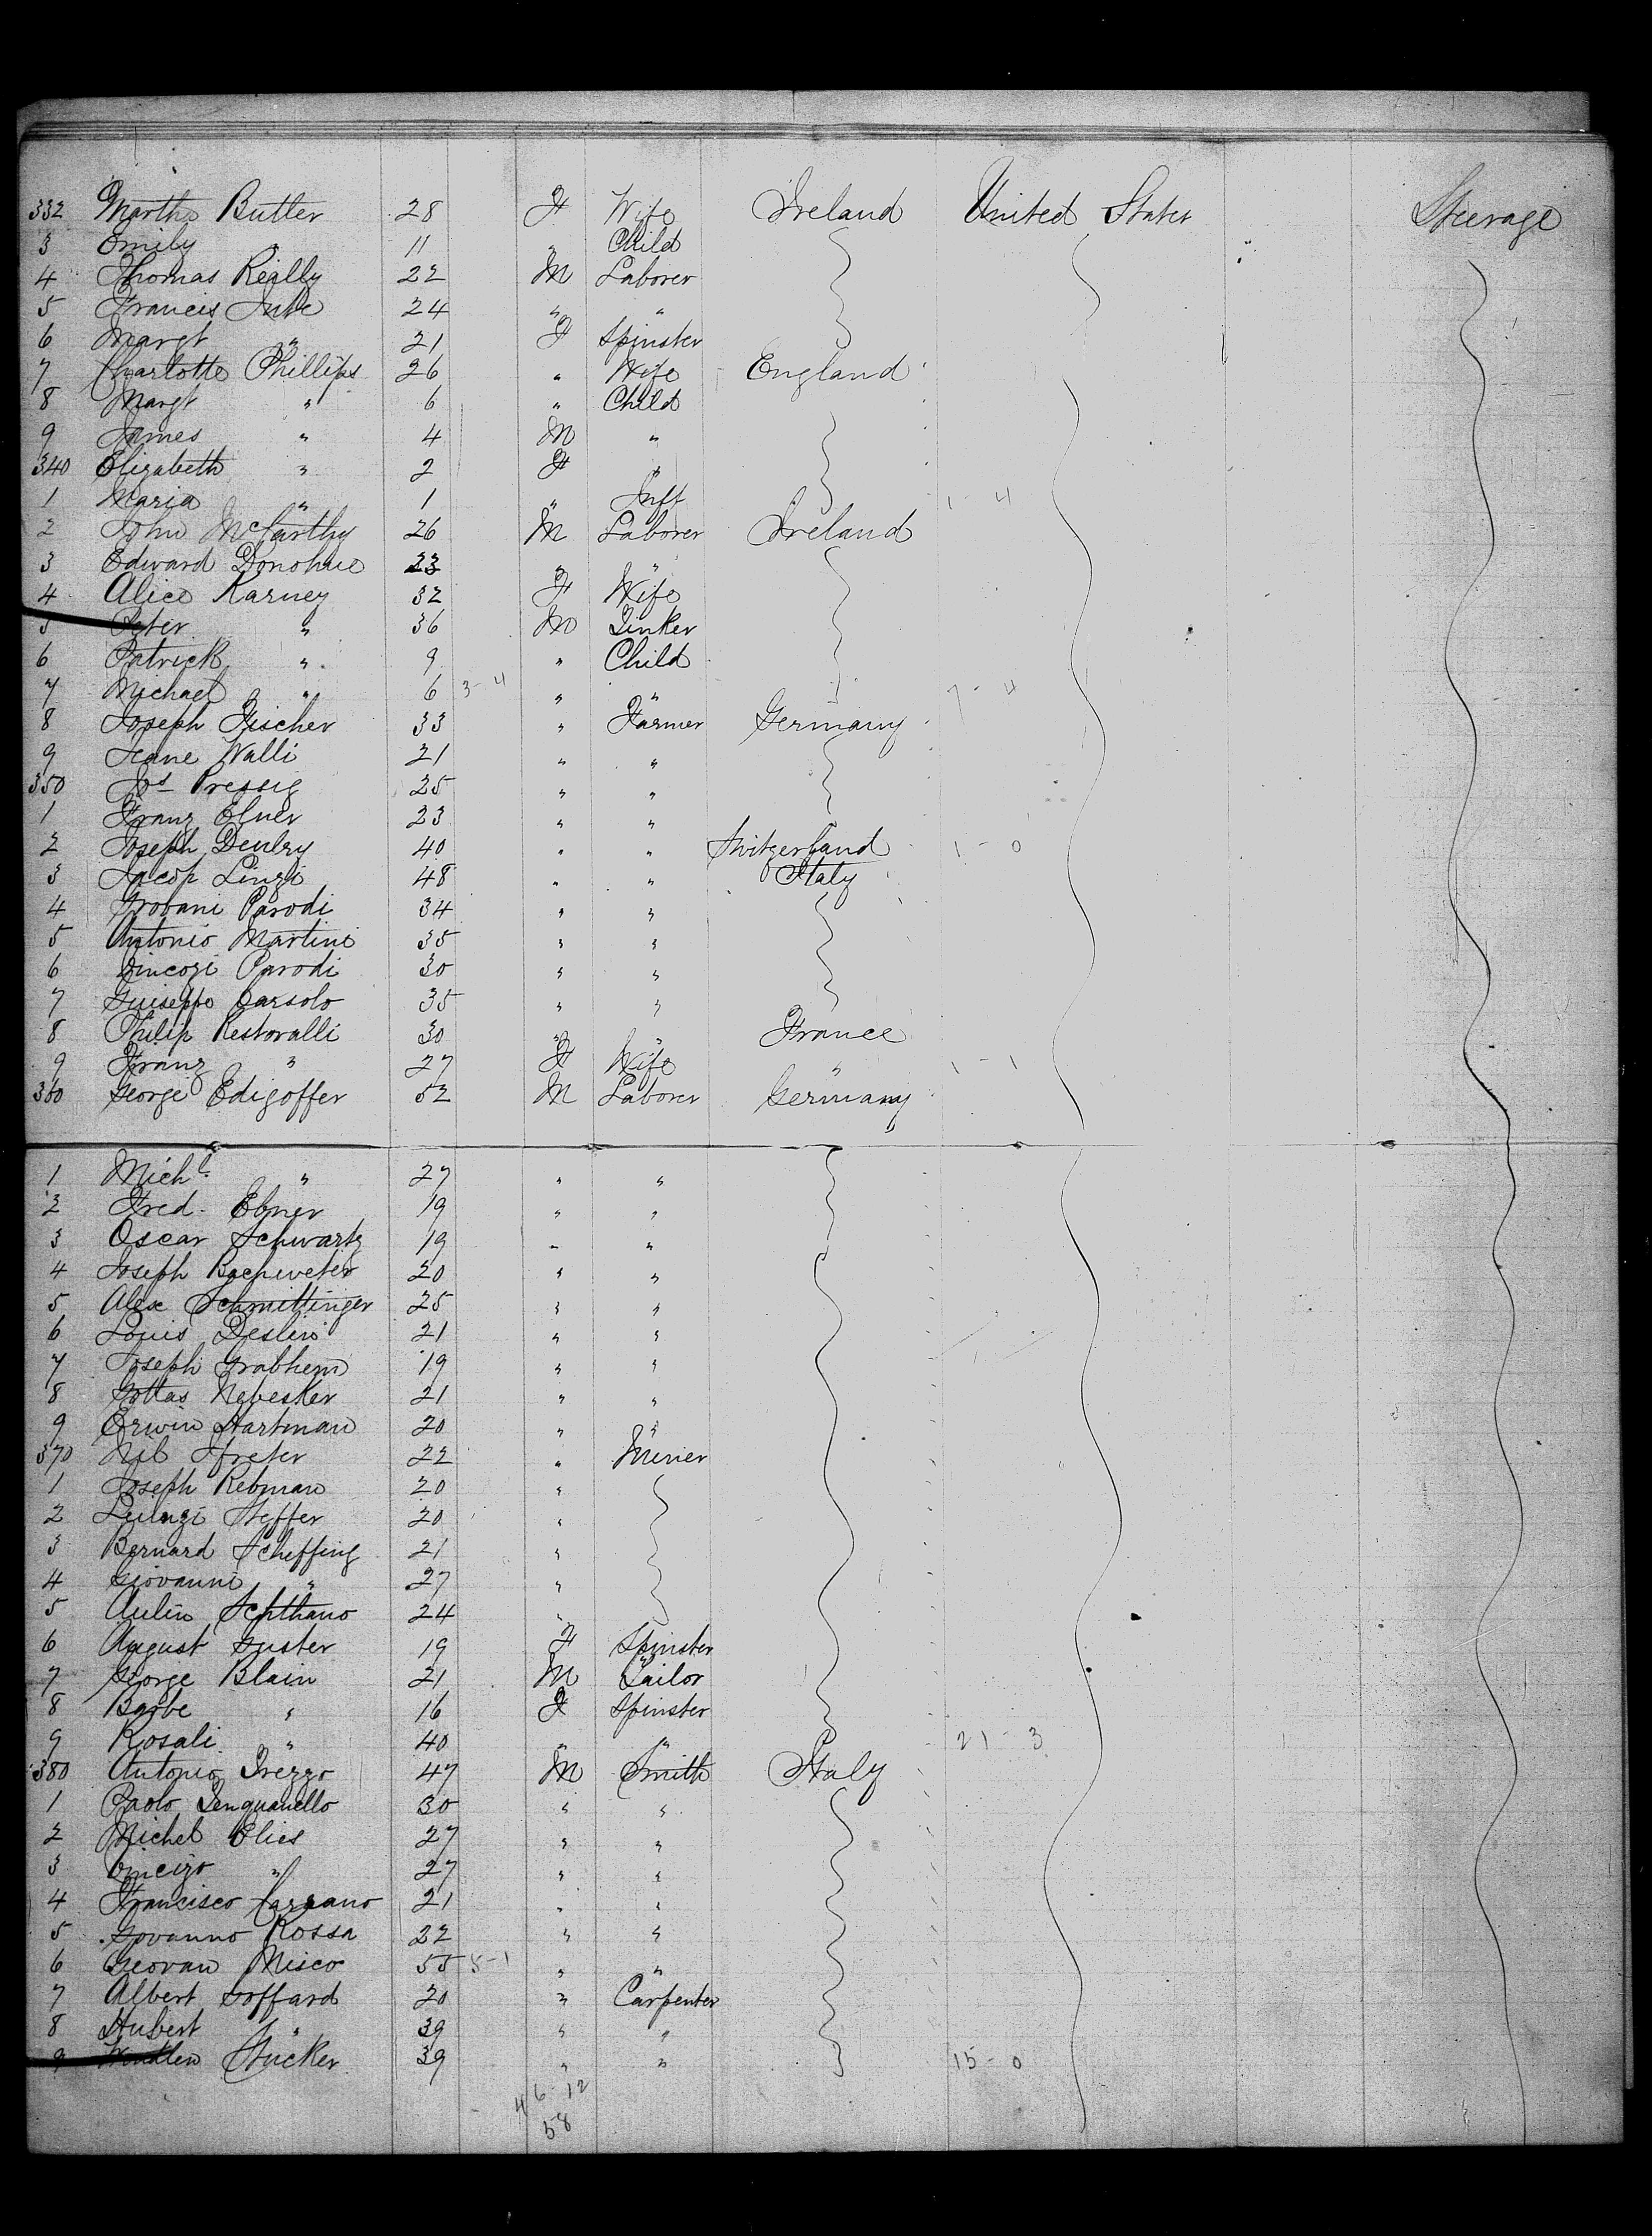 332 Martha Butler 28 F Wife Ireland United States Steerage
3 Emily " 11 " Child
4 Thomas Reilly 22 M Laborer
5 Francis 24 " "
6 Margt " 21 F Spinster
7 Charlotte Phillips 26 " Wife England
8 Margt " 6 " Child
9 James " 4 M "
340 Elizabeth " 2 F "
1 Maria " 1 " Inft 1-4
2 John McCarthy 26 M Laborer Ireland
3 Edward Donohue 23 " "
4 Alice Karney 32 F Wife
5 Peter " 36 M Tinker
6 Patrick " 9 " Child
7 Michael " 6 3-4 " " 7-4
8 Joseph Fischer 33 " Farmer Germany
9 Jeane Walli 21 " "
350 Jos Pressig 25 " "
1 Franz Ebner 23 " "
2 Joseph 40 " " Switzerland 1-0
3 Jacop Linzi 48 " " Italy
4 Grobani Parodi 34 " "
5 Antonio Martini 35 " "
6 Vincozi Parodi 30 " "
7 Guiseppe Carsolo 35 " "
8 Philip Restoralli 30 " " France
9 Franz " 27 F Wife " 1-1
360 George Edigoffer 52 M Laborer Germany
1 Michl " 27 " "
2 Fred. Ebner 19 " "
3 Oscar Schwartz 19 " "
4 Joseph 20 " "
5 Alex Schmittinger 25 " "
6 Louis Deslin 21 " "
7 Joseph Grabhem 19 " "
8 Gottas Nebesker 21 " "
9 Erwin Hartman 20 " "
370 22 " Miner
1 Joseph Rebman 20 "
2 Luinzi Steffer 20 "
3 Bernard Scheffing 21 "
4 Giovanni " 27 "
5 Aulin 24 "
6 August Guster 19 F Spinster
7 George Blain 21 M Tailor
8 Barbe " 16 F Spinster
9 Rosali " 40 " " 21-3
380 Antonio Trezzo 47 M Smith Italy
1 Paolo Tenquanello 30 " "
2 Michel Elies 27 " "
3 Vincizo " 27 " "
4 Francisco Carrano 21 " "
5 Govanno Rossa 22 " "
6 Geovan Misco 55 " "
7 Albert Goffard 20 " Carpenter
8 Hubert " 39 " "
9 Stucker 39 " " 15-0
46-12
58